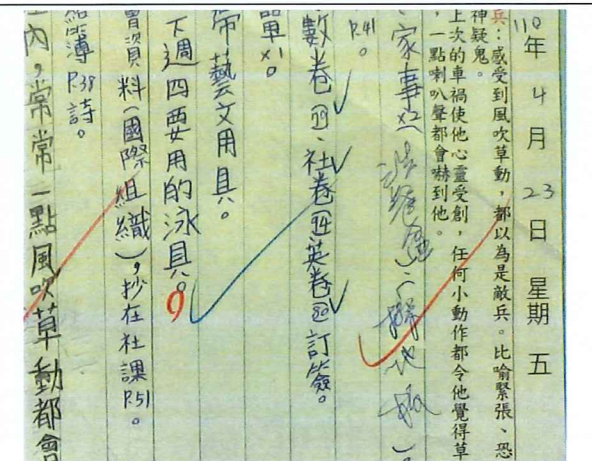 110年4月23日 星期五
兵：感受到風吹草動，都以為是敵兵。比喻緊張、恐
神疑鬼。
上次的車禍使他心靈受創，任何小動作都令他覺得草
，一點喇叭聲都會嚇到他。
家事x2
P.41。
數卷(19)、社卷(14)英卷(20)訂簽。
單x1。
帶藝文用具。
下週四要用的泳具。
資料(國際組織)，抄在社課P.51。
P.38詩。
內，常常一點風吹草動都會